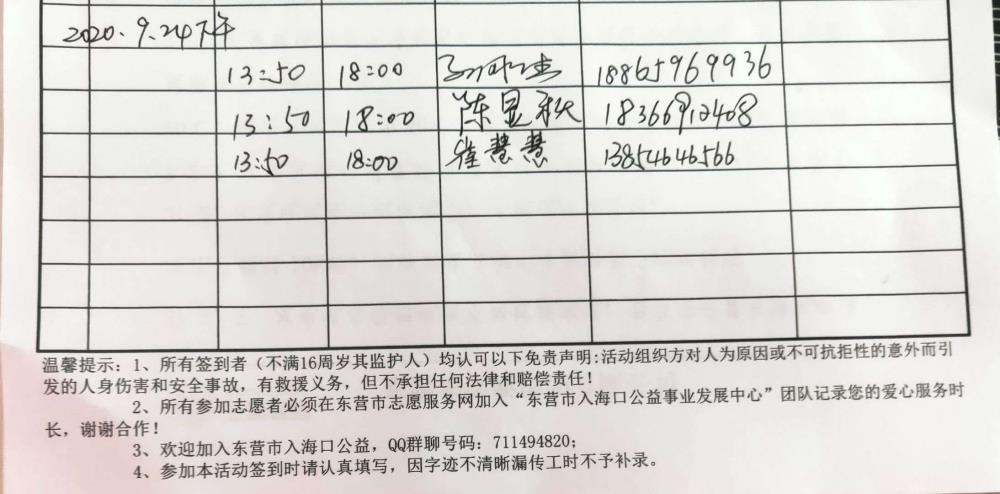 2020.9.24下午
13:50 18:00 18865969936
13:50 18:00 陈显秋 18366912408
13:50 18:00 崔慧慧 13854646566
温馨提示：1、所有签到者（不满16周岁其监护人）均认可以下免责声明:活动组织方对人为原因或不可抗拒性的意外而引
发的人身伤害和安全事故，有救援义务，但不承担任何法律和赔偿责任！
2、所有参加志愿者必须在东营市志愿服务网加入“东营市入海口公益事业发展中心”团队记录您的爱心服务时
长，谢谢合作！
3、欢迎加入东营市入海口公益，QQ群聊号码：711494820；
4、参加本活动签到时请认真填写，因字迹不清晰漏传工时不予补录。